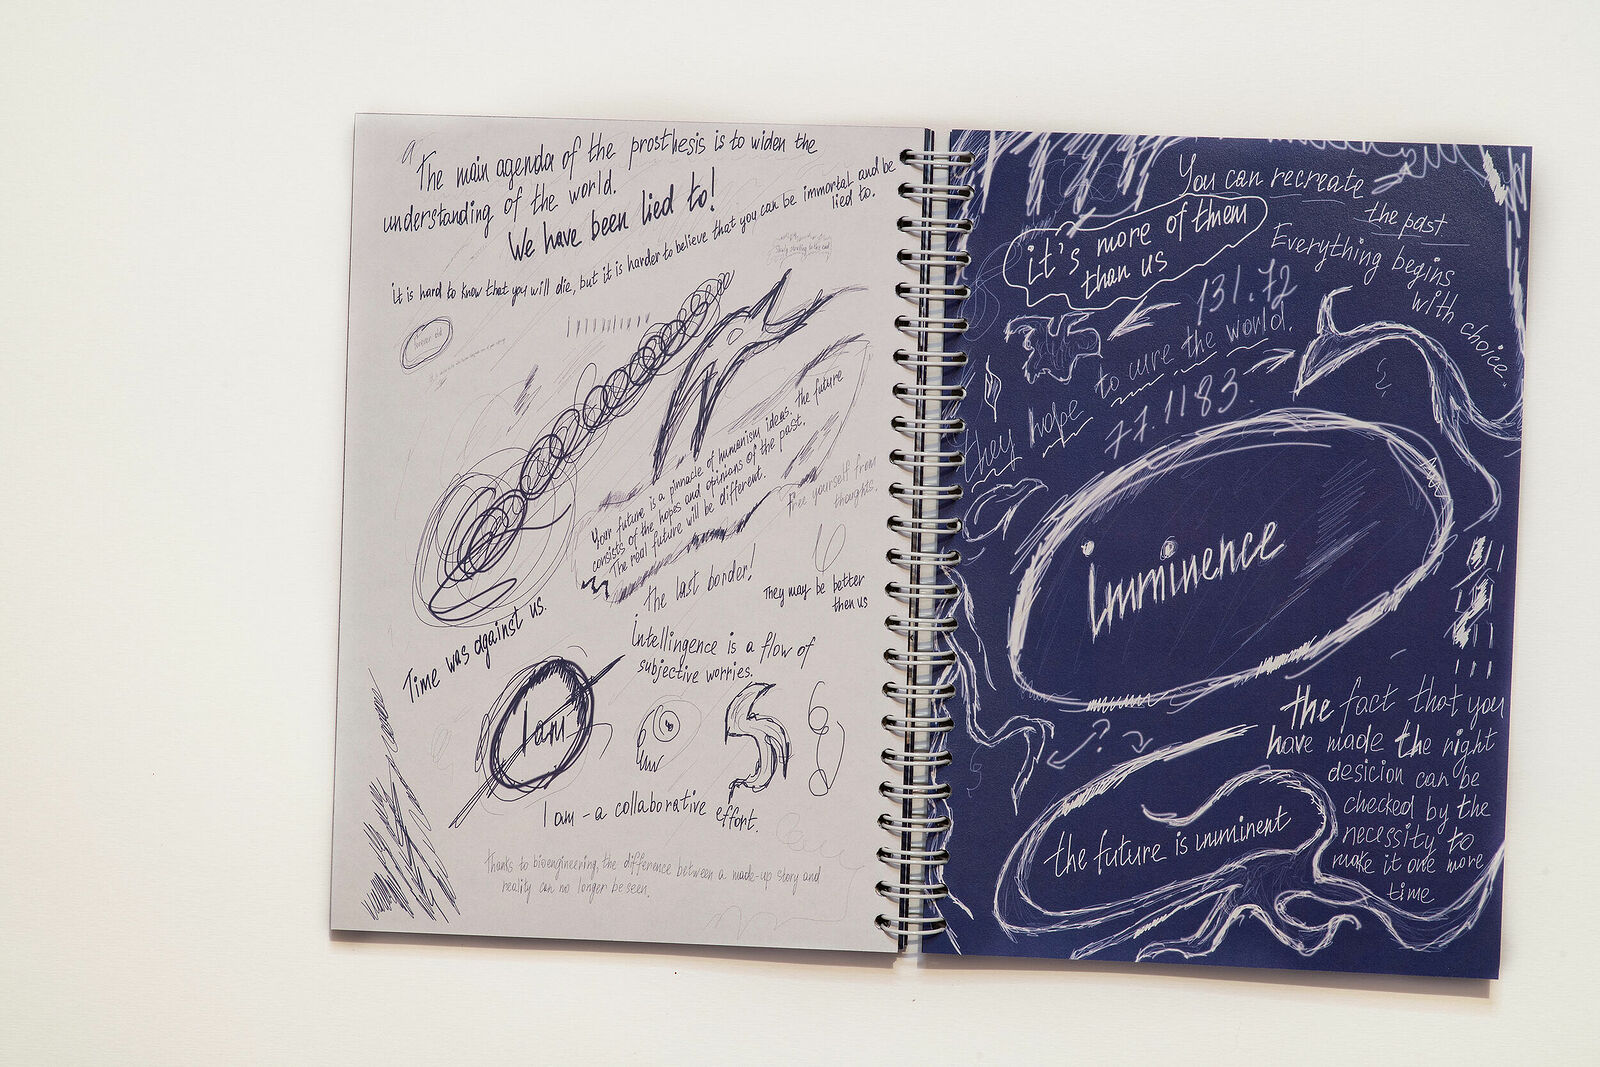 The main agenda of the prosthesis is to widen the
understanding of the world.
We have been lied to!
it is hard to know that you will die, but it is harder to believe that you can be immortal and be
lied to.
Your future is a pinnacle of humanism ideas. the future
consists of the hopes and opinions of the past.
The real future will be different.
Free yourself from
thoughts.
The last border!
They may be better
then us
Time was against us.
intellingence is a flow of
subjective worries.
I am
I am - a collaborative effort.
thanks to bioengineering, the difference between a made-up story and
reality can no longer be seen.
You can recreate
the past
it's more of them
than us
Everything begins
with choice.
131.72
they hope to cure the world.
77.1183.
imminence
?
the fact that you
have made the right
desicion can be
checked by the
necessity to
make it one more
time
the future is imminent